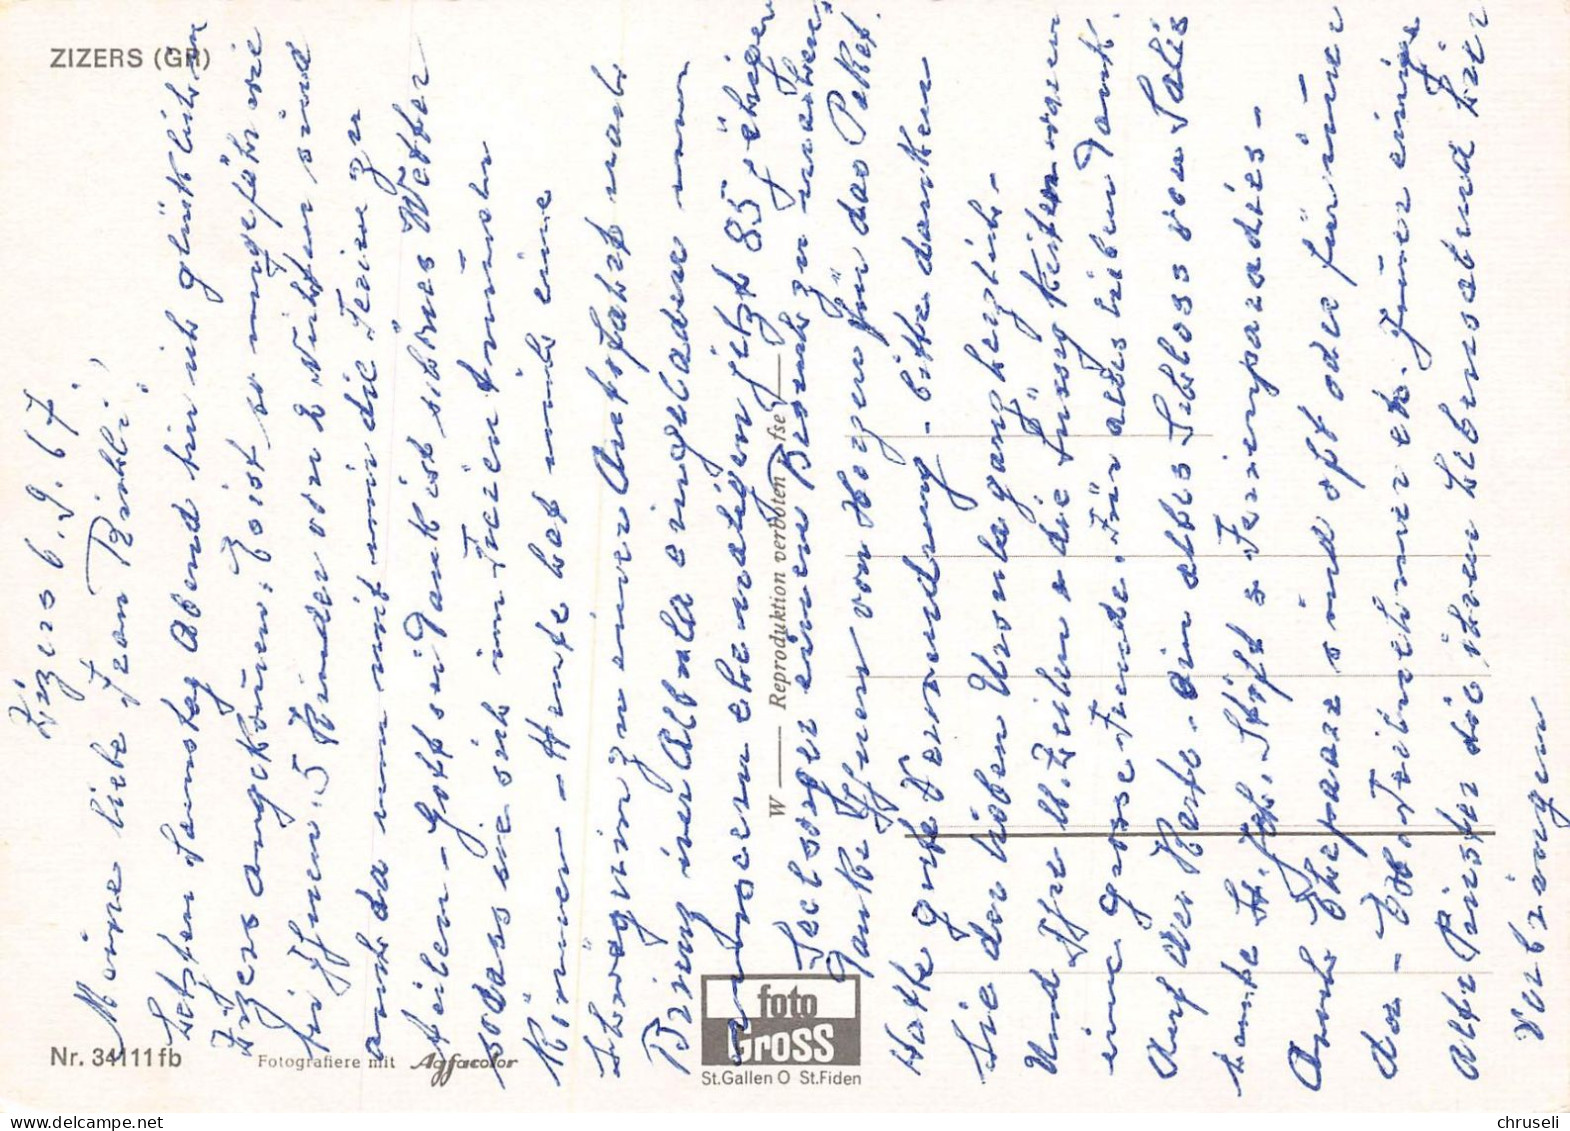 ZIZERS (GR)
Zizers 6.9.67.
Meine liebe Frau Bürkli!
Letzten Samstag Abend bin ich glücklich in
Zizers angekommen. Es ist so ungefähr wie
bei Ihnen. 5 Kinder von 2 Nichten sind
auch da um mit mir die Ferien zu
teilen - Gott sei Dank ist schönes Wetter
sodass sie sich im Freien tummeln
können - Heute hat mich eine
Schwägerin zu einer Autofahrt nach
Brienz über Albula eingeladen um
unserem ehemaligen jetzt 85 jährigen
Seelsorger einen Besuch zu machen
Danke Ihnen von Herzen für das Paket.
Hatte gute Verwendung - bitte danken
Sie der lieben Ursula ganz herzlich -
Und Ihre lb. Zeilen & die Süssigkeiten waren
eine grosse Freude. Für alles lieben Dank.
Auf der Karte - ein altes Schloss von Salis
heute St. Joh. Stift & Ferienparadies -
Auch Ehepaare sind oft oder für immer
da - Kurteilnehmer etc. Immer einige
alte Priester die ihren Lebensabend hier
verbringen
W — Reproduktion verboten —
Nr. 34111 fb
Fotografiere mit Agfacolor
foto
GROSS
St.Gallen O St.Fiden
chruseli